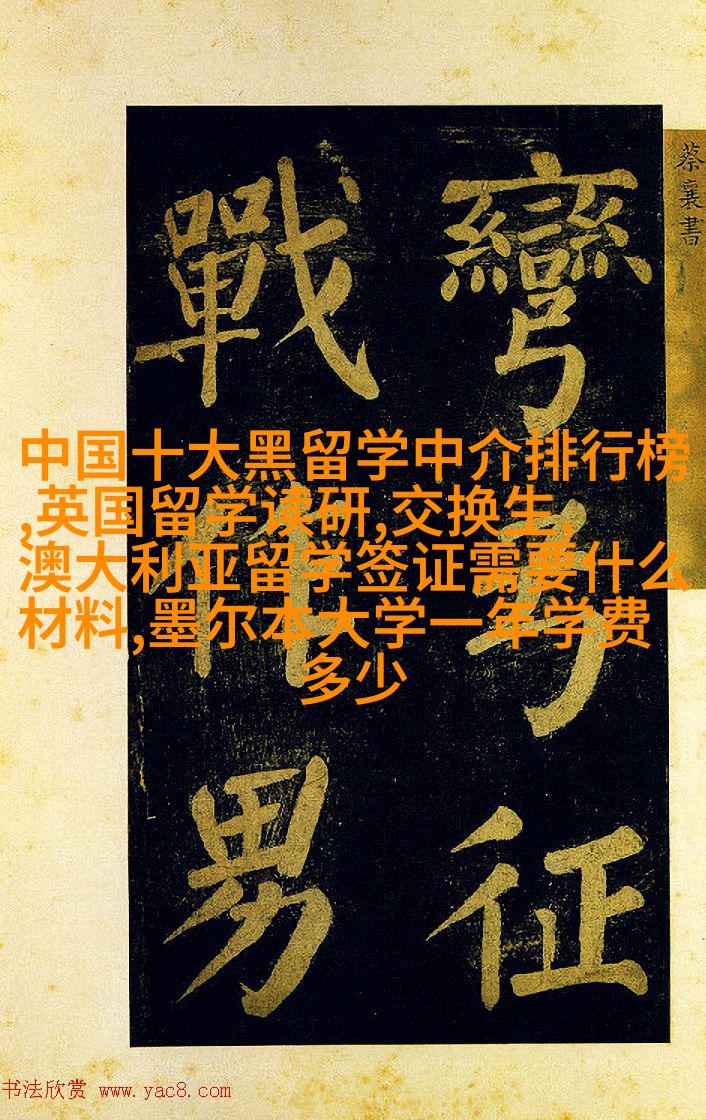 蔡襄書
彎弓征
戰男
中国十大黑留学中介排行榜
,英国留学读研,交换生,
澳大利亚留学签证需要什么
材料,墨尔本大学一年学费
多少
书法欣赏 www.yac8.com